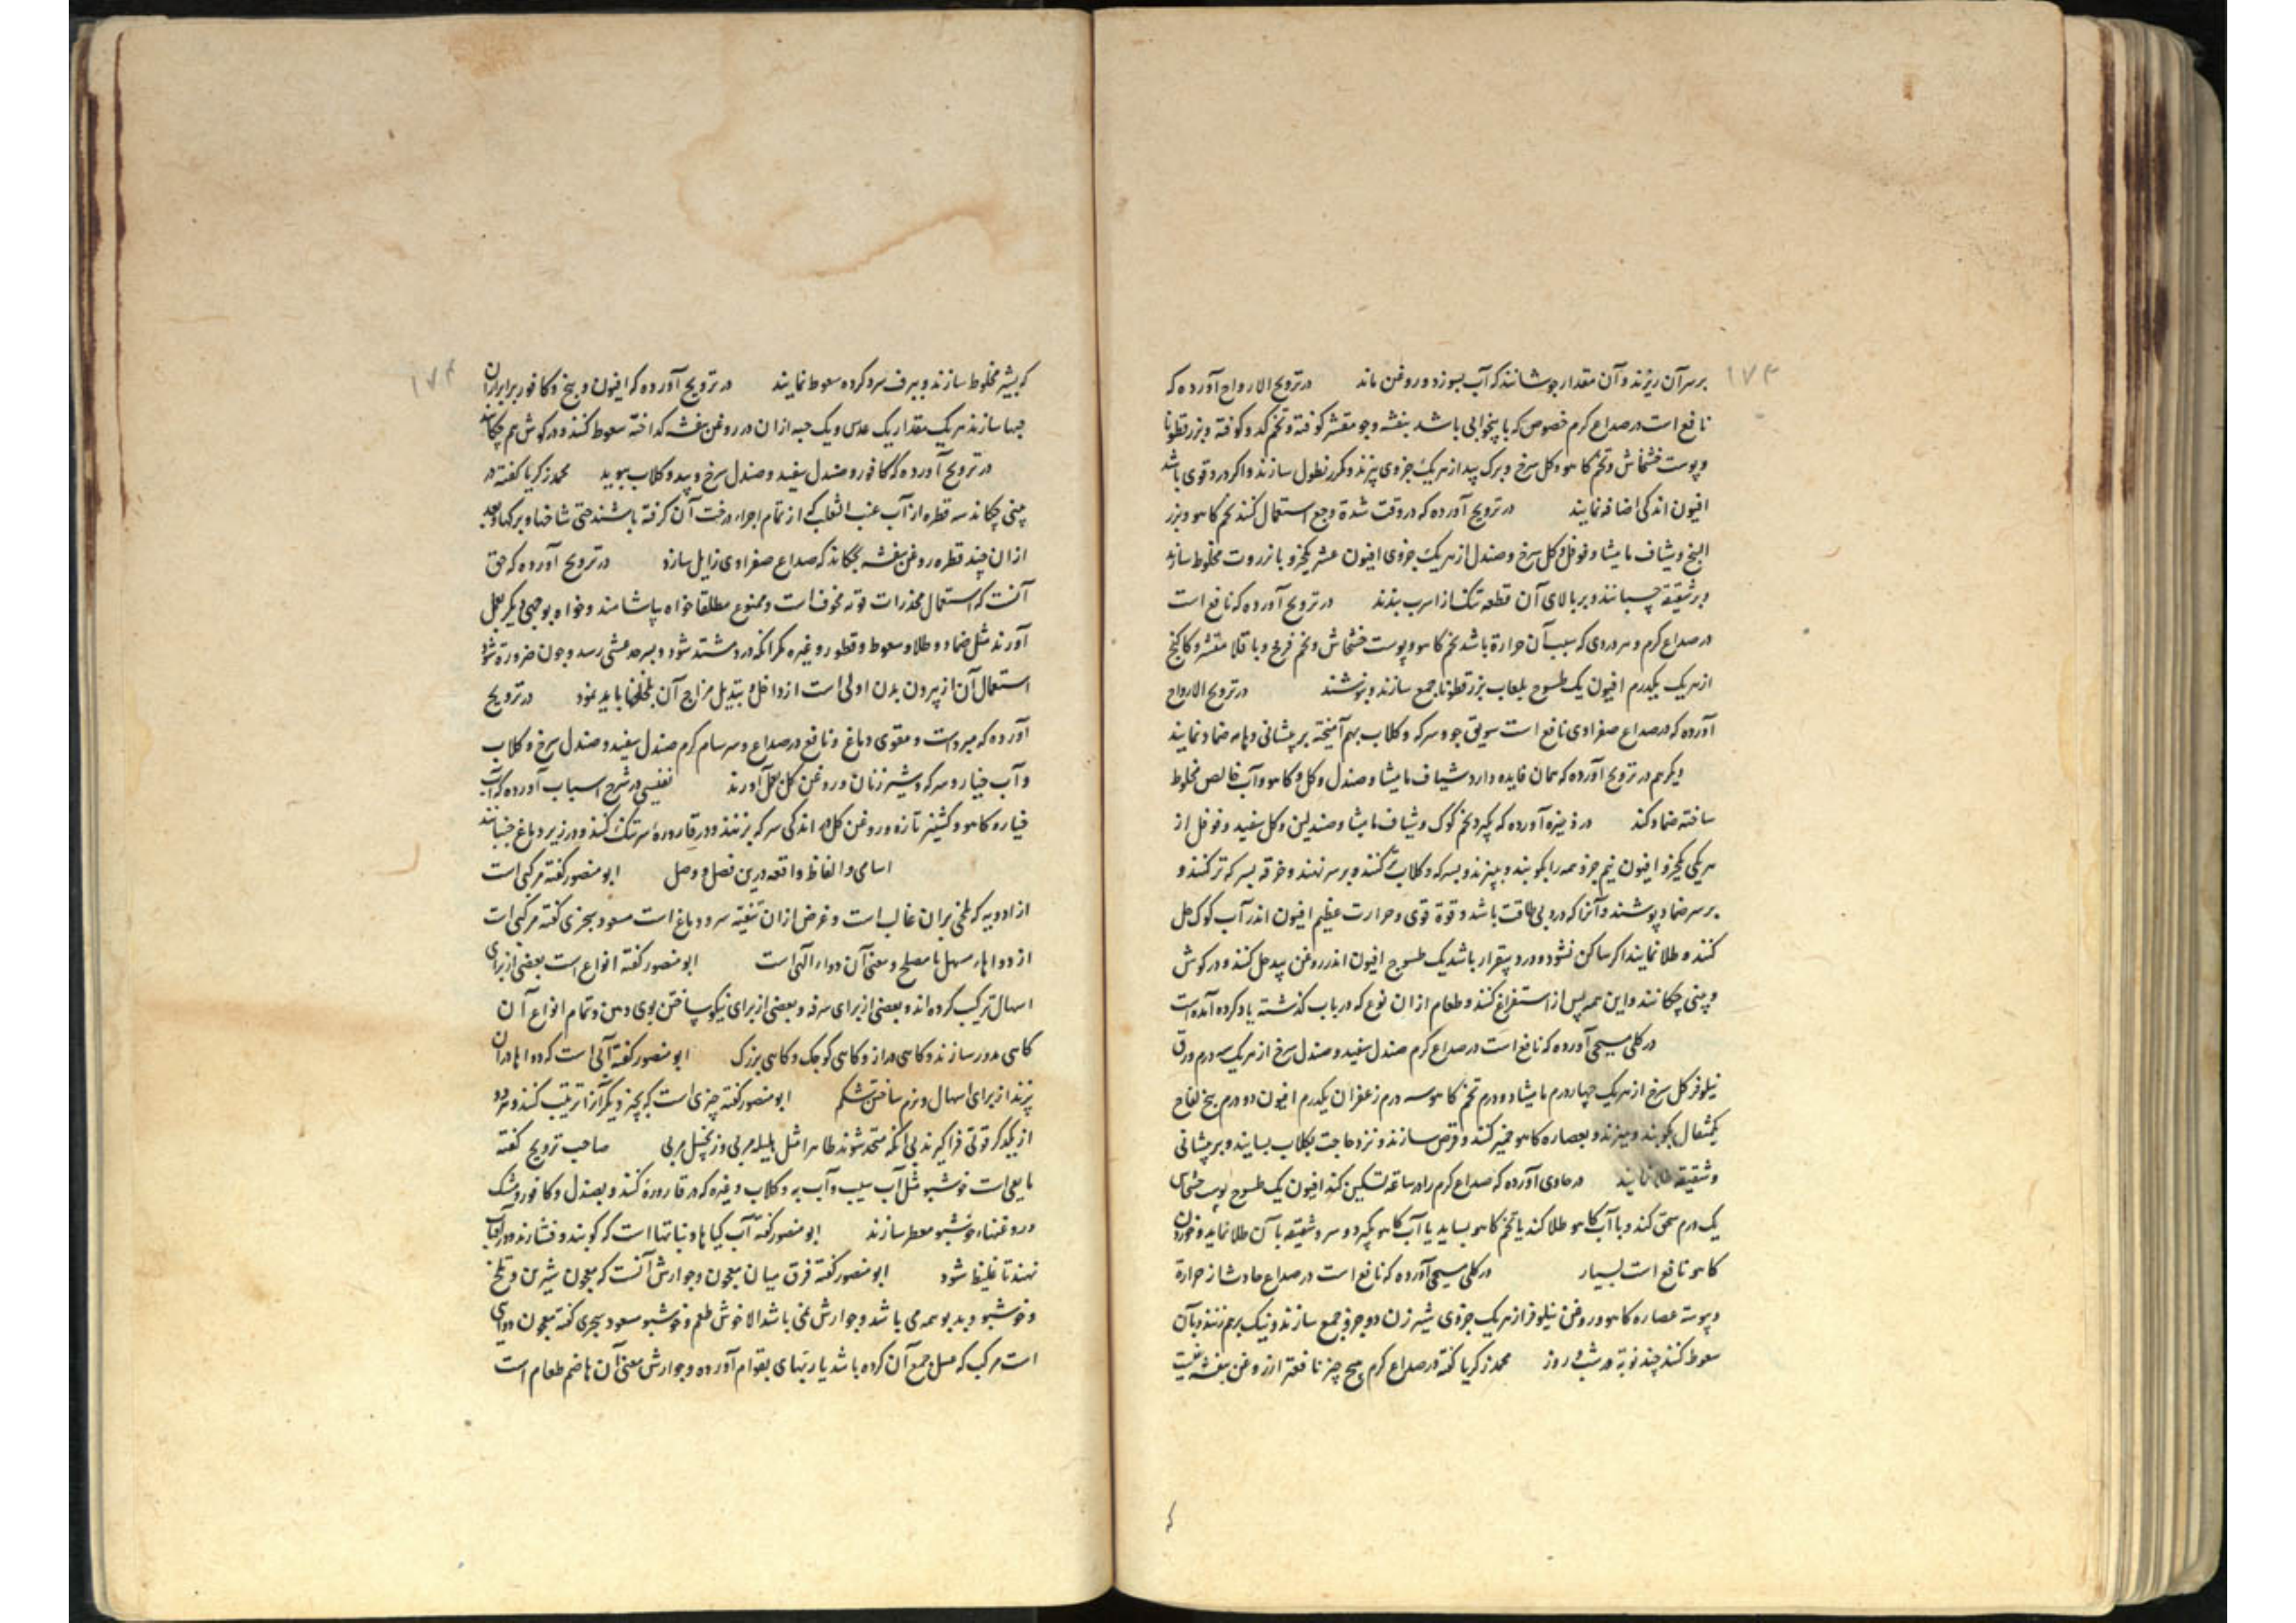 ۱۷۳
برسر آن ریزند و آن مقدار جوشانند که آب بسوزد و روغن ماند در ترویح الارواح آورده که
نافع است در صداع کرم خصوص که با بیخوابی باشد بنفشه و جو مقشر کوفته و تخم کدو کوفته و بزر قطونا
و پوست خشخاش و تخم کاهو و کل سرخ و برک بید از هریک جزوی بپزند و مکرر نطول سازند و اکر درد قوی باشد
افیون اندکی اضافه نمایند در ترویح آورده که در وقت شدة وجع استعمال کنند تخم کاهو و بزر
البنج و شیاف مامیثا و فوفل و کل سرخ و صندل از هریک جزوی افیون عشر یکجزو با نزروت مخلوط سازند
و بر شقیقه چسبانند و بر بالای آن قطعه تنک از اسرب بندند در ترویح آورده که نافع است
در صداع کرم و هر دردی که سبب آن حرارة باشد تخم کاهو و پوست خشخاش و تخم فرفخ و باقلا مقشر و کاکنج
از هریک یکدرم افیون یک طسوج بلعاب بزرقطونا جمع سازند و بنوشند در ترویح الارواح
آورده که در صداع صفراوی نافع است سویق جو و سرکه و کلاب بهم آمیخته بر پیشانی و هامه ضماد نمایند
دیکر هم در ترویح آورده که همان فایده دارد شیاف مامیثا و صندل و کل و کاهو و آب خالص مخلوط
ساخته ضماد کند در ذخیره آورده که بکیرد تخم کوک و شیاف مامیثا و صندلین و کل سفید و فوفل از
هریکی یکجزو افیون نیم جزو همه را بکوبند و ببیزند و بسرکه و کلاب کنند و بر سر نهند و خرقه بسرکه تر کنند و
بر سر ضماد پوشند و آنرا که درد بی طاقت باشد و قوة قوی و حرارت عظیم افیون اندر آب کوک حل
کنند و طلا نمایند اکر ساکن نشود و درد بیقرار باشد یک طسوج افیون اندر روغن بید حل کنند و در کوش
و بینی چکانند و این همه پس از استفراغ کنند و طعام ازان نوع که در باب کذشته یاد کرده آمده است
در کلی مسیحی آورده که نافع است در صداع کرم صندل سفید و صندل سرخ از هریک سه درم ورق
نیلوفر کل سرخ از هریک چهار درم مامیثا دو درم تخم کاهو سه درم زعفران یکدرم افیون دو درم بیخ لفاح
یکمثقال بکوبند و ببیزند و بعصاره کاهو خمیر کنند و قرص سازند و نزد حاجت بکلاب بسایند و بر پیشانی
و شقیقه طلا نمایند در حاوی آورده که صداع کرم را در ساعة تسکین کند افیون یک طسوج پوست خشخاش
یک درم سحق کند و با آب کاهو طلا کند یا تخم کاهو بساید یا آب کاهو بکیرد و سر و شقیقه بآن طلا نماید و خوردن
کاهو نافع است بسیار در کلی مسیحی آورده که نافع است در صداع حادث از حرارة
و یبوسة عصاره کاهو و روغن نیلوفر از هریک جزوی شیر زن دو جزو جمع سازند و نیک برهم زنند و بآن
سعوط کنند چند نوبة در شب و روز محمد زکریا کفته در صداع کرم هیچ چیز نافعتر از روغن بنفشه نیست
که
۱۷۴
که بشیر مخلوط سازند و ببرف سرد کرده سعوط نمایند در ترویح آورده که افیون و بنج و کافور برابر ازان
حبها سازند هریک مقدار یک عدس و یک حبه ازان در روغن بنفشه کداخته سعوط کنند و در کوش هم چکانند
در ترویح آورده که کافور و صندل سفید و صندل سرخ و بید و کلاب ببوید محمد زکریا کفته در
بینی چکاند سه قطره از آب عنب الثعلب که از تمام اجزاء درخت آن کرفته باشند حتی شاخها و برکها و بعد
ازان چند قطره روغن بنفشه بچکاند که صداع صفراوی زایل سازد در ترویح آورده که حق
آنست که استعمال مخدرات فوته مخوف است و ممنوع مطلقا خواه بیاشامند و خواه بوجهی دیکر بعمل
آورند مثل ضماد و طلا و سعوط و قطور و غیره مکر انکه درد مشتد شود و بسرحد غشی رسد و چون ضرورة شود
استعمال آن از بیرون بدن اولی است از داخل و تبدیل مزاج آن بلخلخها باید نمود در ترویح
آورده که مبرد است و مقوی دماغ و نافع در صداع و سرسام کرم صندل سفید و صندل سرخ و کلاب
و آب خیار و سرکه و شیر زنان و روغن کل بعمل آورند نفیسی در شرح اسباب آورده که آب
خیار و کاهو و کشنیز تازه و روغن کل و اندکی سرکه بزنند و در قاروره سرتنک کنند و در زیر دماغ جنبانند
اسامی و الفاظ واقعه درین فصل و وصل ابو منصور کفته مرکبی است
از ادویه که تلخی بران غالب است و غرض ازان تنقیة سر و دماغ است مسعود سجزی کفته مرکبی است
از دواهاء مسهل با مصلح و معنی آن دواء الهی است ابو منصور کفته انواع است بعضی از برای
اسهال ترکیب کرده اند و بعضی از برای سرفه و بعضی از برای نیکو ساختن بوی دهن و تمام انواع آن
کاهی مدور سازند و کاهی دراز و کاهی کوچک و کاهی بزرک ابو منصور کفته آبی است که دواها دران
پزند از برای اسهال و نرم ساختن شکم ابو منصور کفته چیزی است که بچیز دیکر آنرا تربیت کنند و هردو
از یکدکر قوتی فراکیرند بی انکه متحد شوند ظاهرا مثل بلیله مربی و زنجبیل مربی صاحب ترویح کفته
مایعی است خوشبو مثل آب سیب و آب به و کلاب و غیره که در قاروره کنند و بصندل و کافور و مشک
و روغنهاء خوشبو معطر سازند ابو منصور کفته آب کیاها و نباتها است که کوبند و فشارند و در آفتاب
نهند تا غلیظ شود ابو منصور کفته فرق میان معجون و جوارش آنست که معجون شیرین و تلخ
و خوشبو و بدبو همه می باشد و جوارش نمی باشد الا خوش طعم و خوشبو مسعود سجزی کفته معجون دوای
است مرکب که عسل جمع آن کرده باشد یا ربهای بقوام آورده و جوارش معنی آن هاضم طعام است